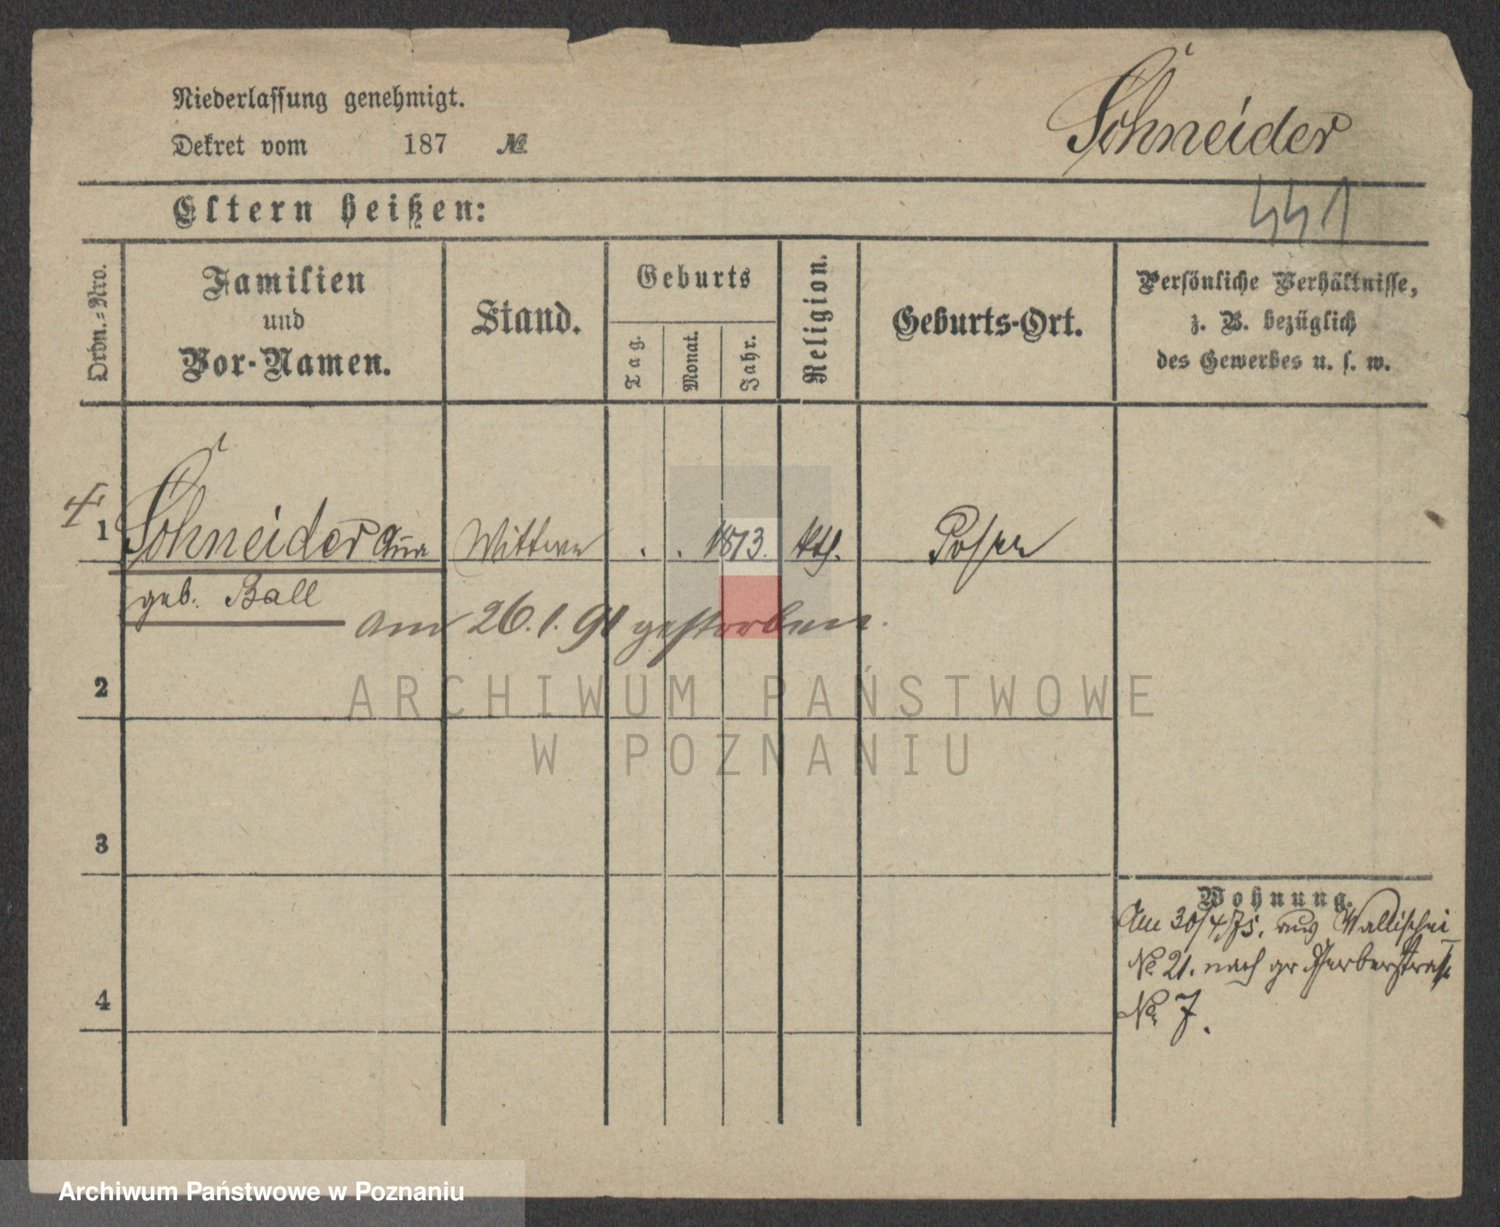 Niederlassung genehmigt.
Dekret vom 187 №
Schneider
441
Eltern heißen:
Ordn.=Nro.
Familien
und
Vor-Namen.
Stand.
Geburts
Tag.
Monat.
Jahr.
Religion.
Geburts-Ort.
Persönliche Verhältnisse,
z. B. bezüglich
des Gewerbes u. s. w.
1 Schneider Anna Wittwe . . 1813. kth. Posen
geb. Ball
am 26.1.91 gestorben.
2
3
4
Wohnung.
Am 30/4.75. aus Wallischei
№ 21. nach gr Gerberstraße
№ 7.
ARCHIWUM PAŃSTWOWE
W POZNANIU
Archiwum Państwowe w Poznaniu